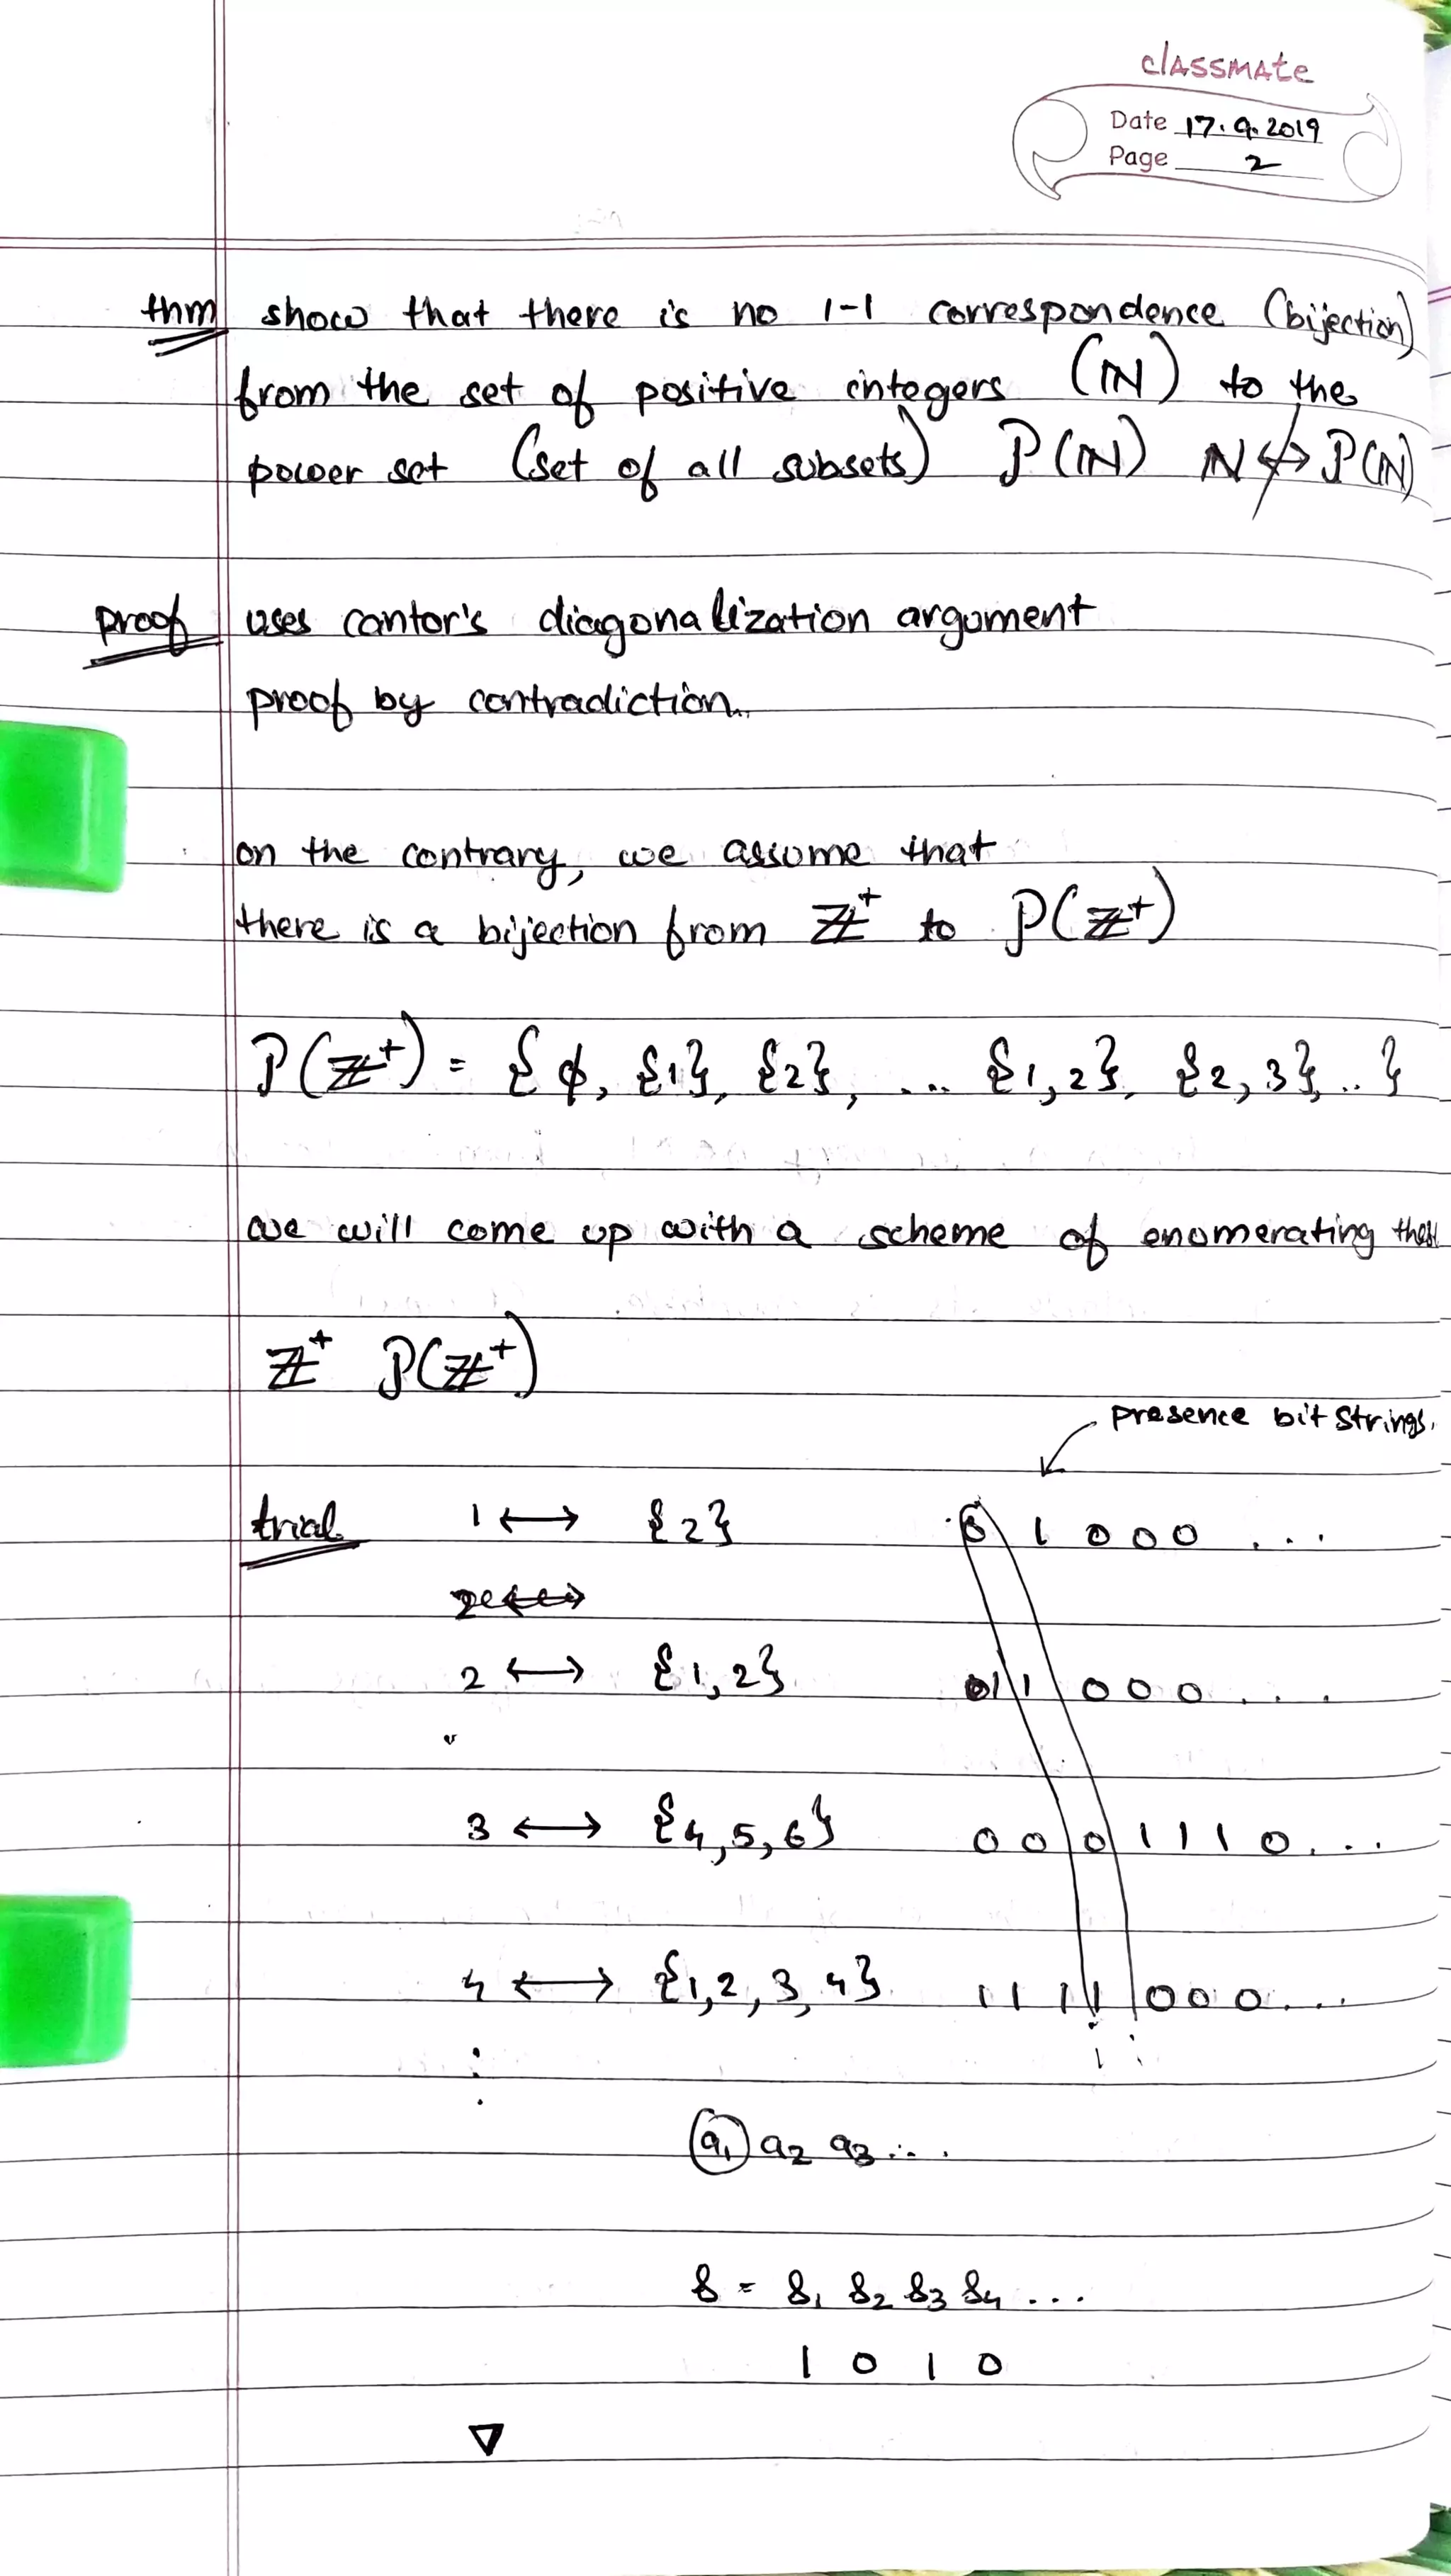 classmate
Date 17.9.2019
Page 2
thm show that there is no 1-1 correspondence (bijection)
from the set of positive integers (ℕ) to the
power set (set of all subsets) P(ℕ) ℕ ↮ P(ℕ)
proof uses cantor's diagonalization argument
proof by contradiction.
on the contrary, we assume that
there is a bijection from ℤ⁺ to P(ℤ⁺)
P(ℤ⁺) = {ϕ, {1}, {2}, ... {1,2}, {2,3}, .. }
we will come up with a scheme of enumerating
ℤ⁺ P(ℤ⁺)
presence bit strings.
trial 1 ↔ {2} 0 1 0 0 0 ...
2 ↔ {1,2} 1 1 0 0 0 ...
3 ↔ {4,5,6} 0 0 0 1 1 1 0 ...
4 ↔ {1,2,3,4} 1 1 1 1 0 0 0 ...
a₁ a₂ a₃ ...
s = s₁ s₂ s₃ s₄ ...
1 0 1 0